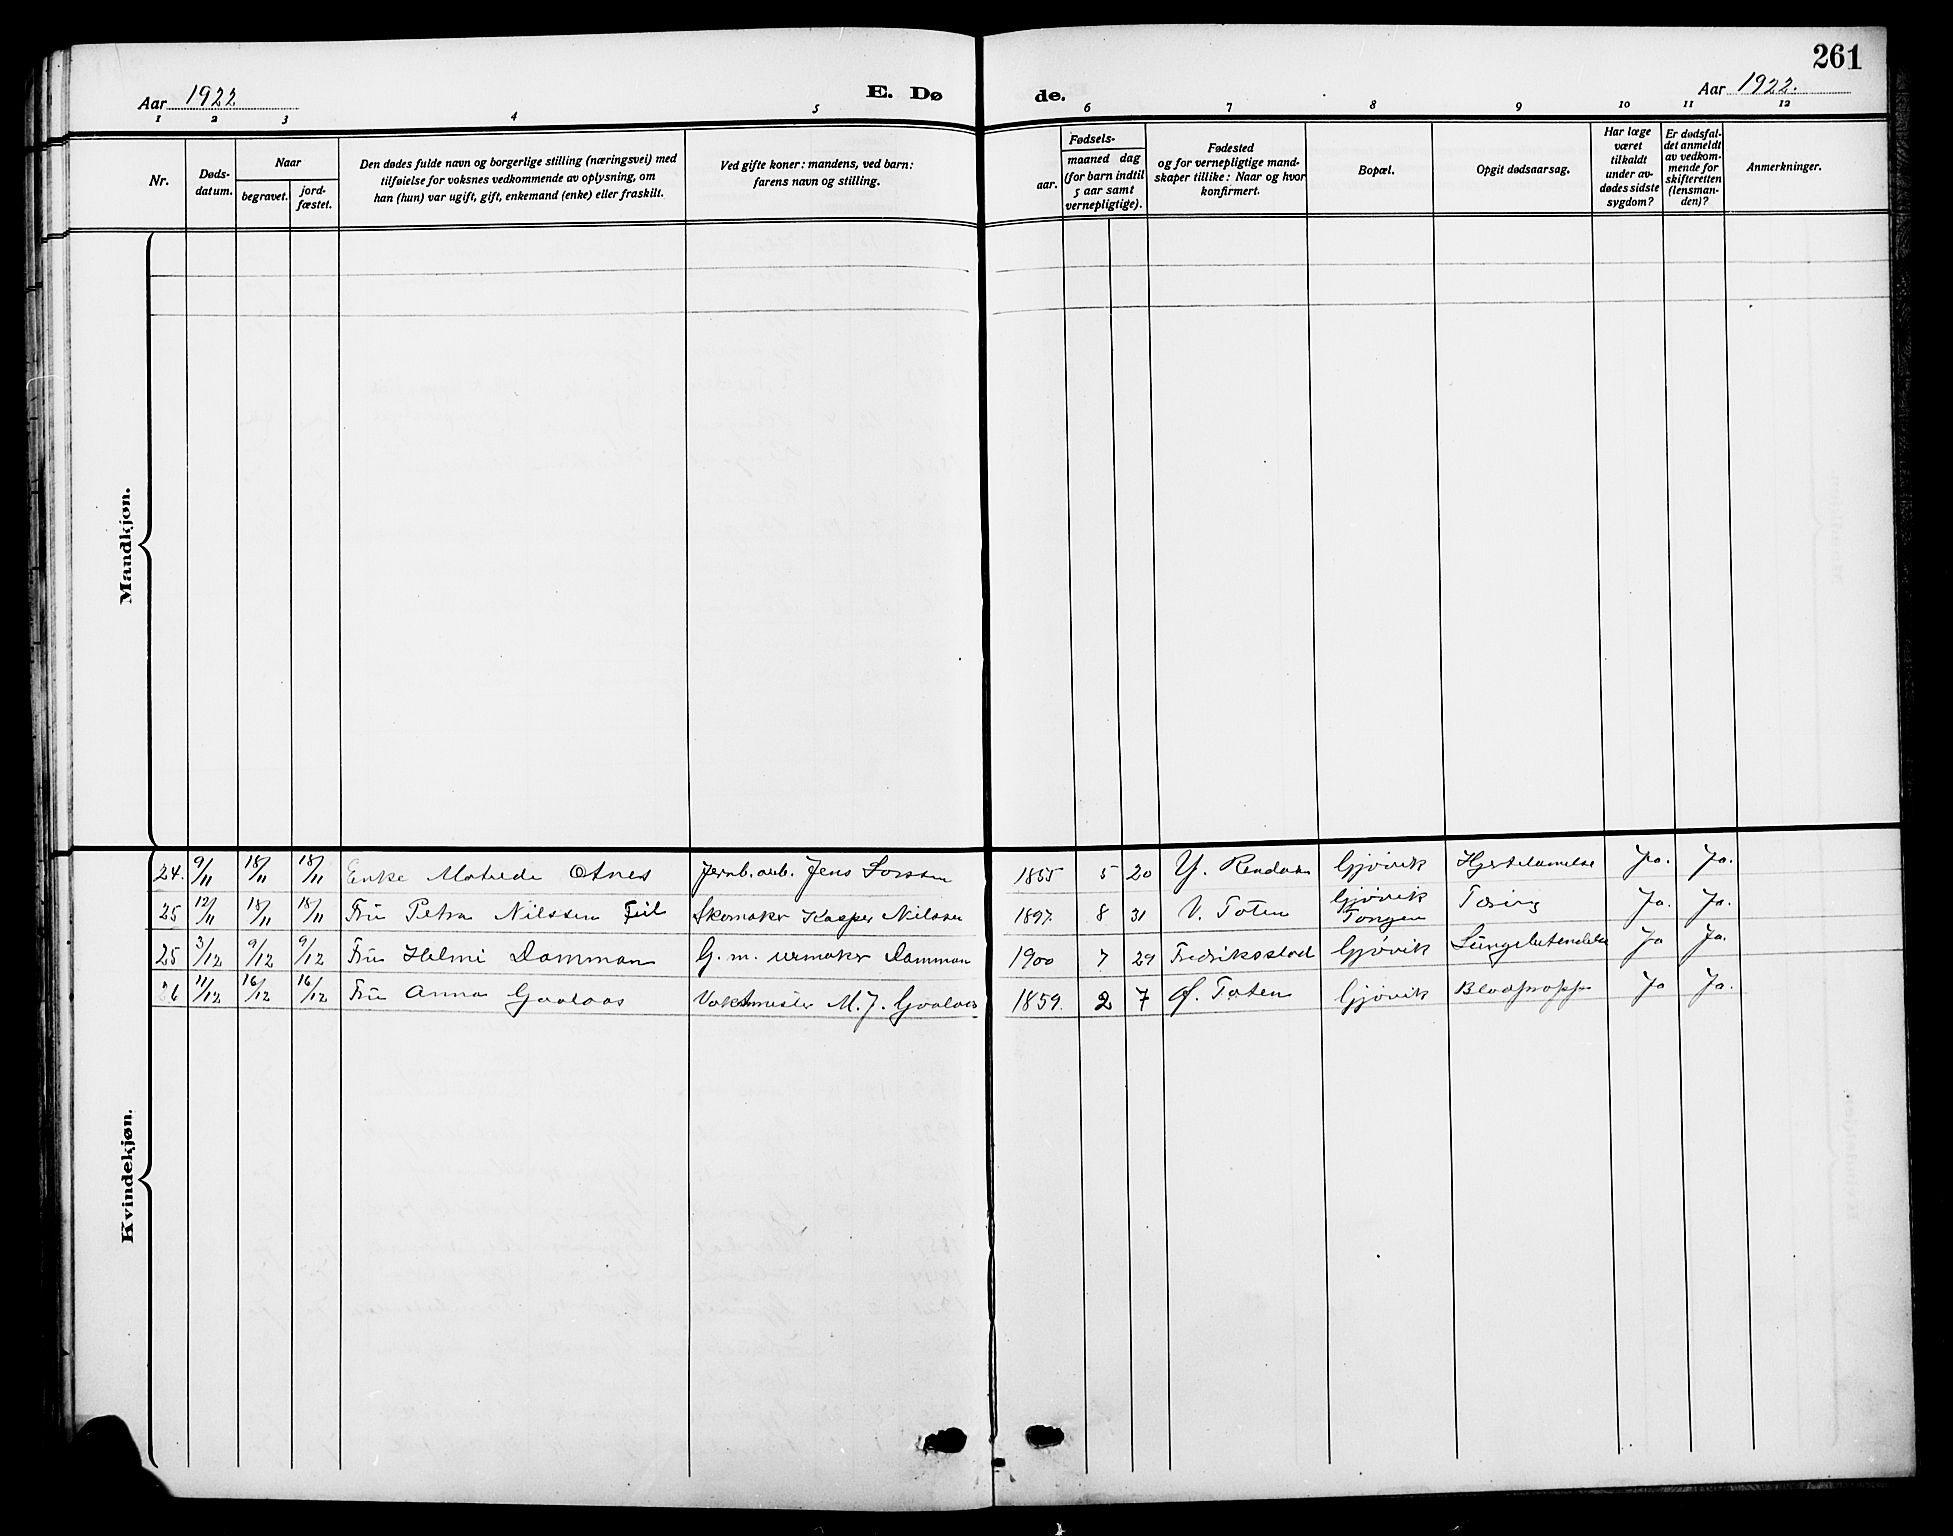 261
Aar 1922
E. Dø
de.
Aar 1922.
1 2 3 4 5 6 7 8 9 10 11 12
Nr.
Døds-
datum.
Naar
begravet.
jord-
fæstet.
Den dødes fulde navn og borgerlige stilling (næringsvei) med
tilføielse for voksnes vedkommende av oplysning, om
han (hun) var ugift, gift, enkemand (enke) eller fraskilt.
Ved gifte koner: mandens, ved barn:
farens navn og stilling.
Fødsels-
aar.
maaned dag
(for barn indtil
5 aar samt
vernepligtige).
Fødested
og for vernepligtige mand-
skaper tillike: Naar og hvor
konfirmert.
Bopæl.
Opgit dødsaarsag.
Har læge
været
tilkaldt
under av-
dødes sidste
sygdom?
Er dødsfal-
det anmeldt
av vedkom-
mende for
skifteretten
(lensman-
den)?
Anmerkninger.
Mandkjøn.
Kvindekjøn.
24. 9/11 18/11 18/11 Enke Matilde Otnes Jernb.arb. Jens Larssen 1855 5 20 Y. Rendalen Gjøvik Hjertelamelse Ja. Ja.
25 12/11 18/11 18/11 Fru Petra Nilssen Skomaker Kasper Nilssen 1897. 8 31 V. Toten Gjøvik Tongen Tæring Ja. Ja.
25 3/12 9/12 9/12 Fru Helmi Damman G. m. urmaker Damman 1900 7 29 Fredriksstad Gjøvik Lungebetendelse Ja Ja.
26 11/12 16/12 16/12 Fru Anna Gaalaas Vaktmester M. J. Gaalaas 1859. 2 7 Ø. Toten Gjøvik Blodpropp Ja Ja.